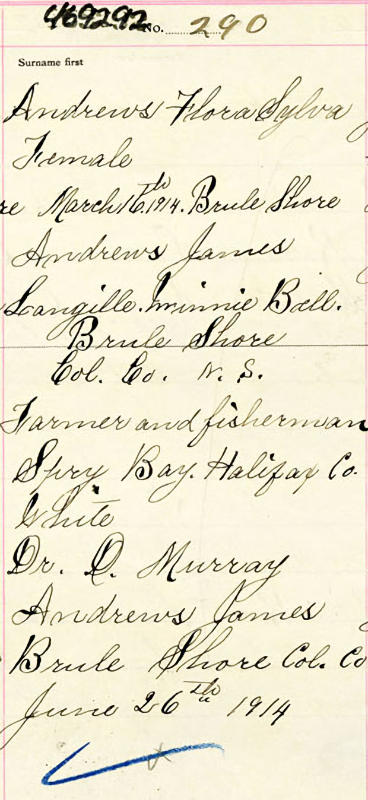 469292 No. 290
Surname first
Andrews Flora Sylva
Female
re March 16th 1914. Brule Shore
Andrews James
Langille. Minnie Bell.
Brule Shore
Col. Co. N. S.
Farmer and fisherman
Spry Bay. Halifax Co.
White
Dr. D. Murray
Andrews James
Brule Shore Col. Co
June 26th 1914